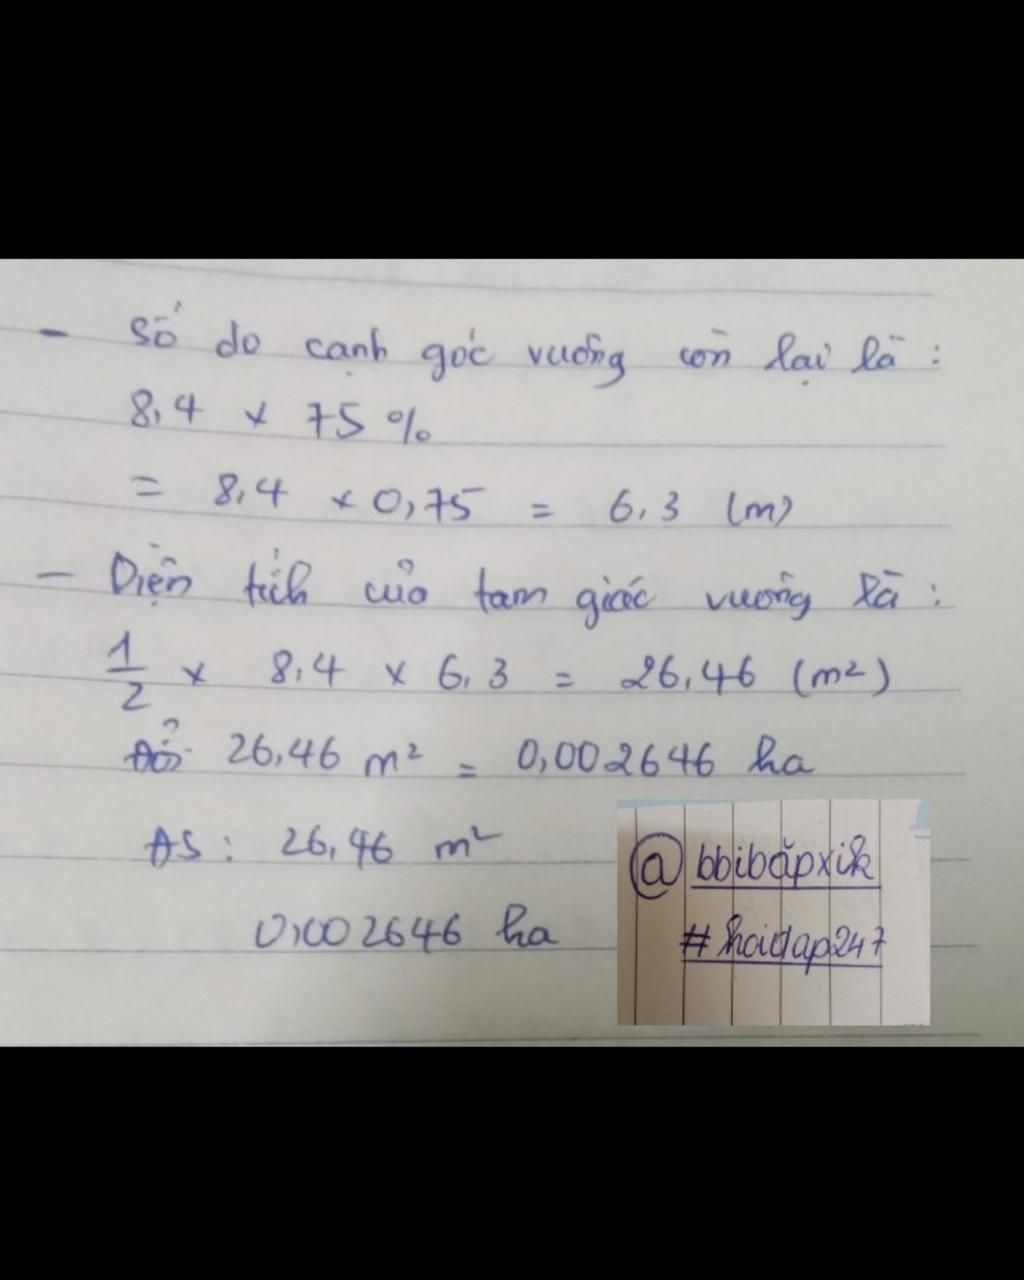 - Số đo cạnh góc vuông còn lại là :
8,4 x 75 %
= 8,4 x 0,75 = 6,3 (m)
- Diện tích của tam giác vuông là :
1/2 x 8,4 x 6,3 = 26,46 (m²)
Đổi 26,46 m² = 0,002646 ha
ĐS : 26,46 m²
0,002646 ha
@bbibắpxik
#hoidap247